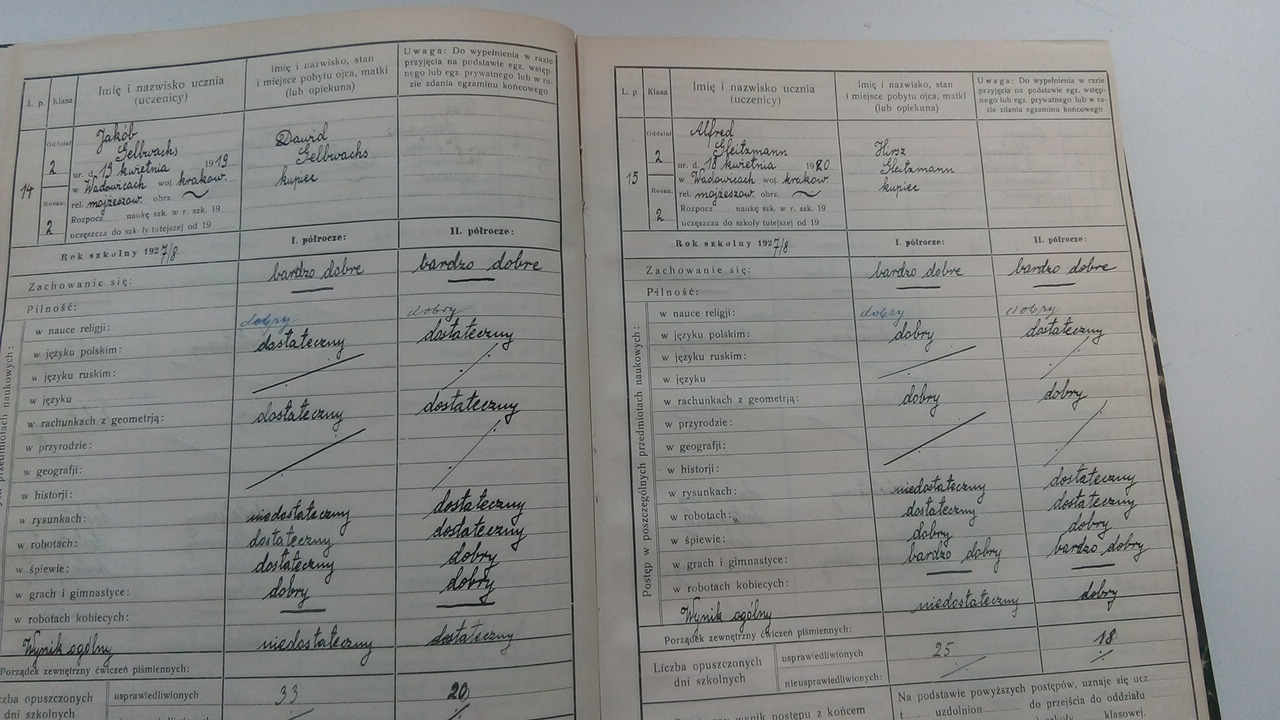 L. p.
Klasa
Imię i nazwisko ucznia
(uczenicy)
Imię i nazwisko, stan
i miejsce pobytu ojca, matki
(lub opiekuna)
Uwaga: Do wypełnienia w razie
przyjęcia na podstawie egz. wstęp-
nego lub egz. prywatnego lub w ra-
zie zdania egzaminu końcowego
14
Oddział
2
Roczn.
2
Jakób
Gelbwachs
ur. d. 19 kwietnia 1919
w Wadowicach woj. krakow.
rel. mojżeszow. obrz. ~
Rozpocz naukę szk. w r. szk. 19
uczęszcza do szkoły tutejszej od 19
Dawid
Gelbwachs
kupiec
Rok szkolny 1927/8
I. półrocze:
II. półrocze:
Zachowanie się: bardzo dobre bardzo dobre
Pilność:
w nauce religji: dobry dobry
w języku polskim: dostateczny dostateczny
w języku ruskim:
w języku
w rachunkach z geometrją: dostateczny dostateczny
w przyrodzie:
w geografji:
w historji:
w rysunkach: niedostateczny dostateczny
w robotach: dostateczny dostateczny
w śpiewie: dostateczny dobry
w grach i gimnastyce: dobry dobry
w robotach kobiecych:
Wynik ogólny niedostateczny dostateczny
Porządek zewnętrzny ćwiczeń piśmiennych:
czba opuszczonych
dni szkolnych
usprawiedliwionych 33 20
L. p.
Klasa
Imię i nazwisko ucznia
(uczenicy)
Imię i nazwisko, stan
i miejsce pobytu ojca, matki
(lub opiekuna)
Uwaga: Do wypełnienia w razie
przyjęcia na podstawie egz. wstęp-
nego lub egz. prywatnego lub w ra-
zie zdania egzaminu końcowego
15
Oddział
2
Roczn.
2
Alfred
Gleitzmann
ur. d. 18 kwietnia 1920
w Wadowicach woj. krakow.
rel. mojżeszow. obrz. ~
Rozpocz naukę szk. w r. szk. 19
uczęszcza do szkoły tutejszej od 19
Hirsz
Gleitzmann
kupiec
Rok szkolny 1927/8
I. półrocze:
II. półrocze:
Postęp w poszczególnych przedmiotach naukowych:
Zachowanie się: bardzo dobre bardzo dobre
Pilność:
w nauce religji: dobry dobry
w języku polskim: dobry dostateczny
w języku ruskim:
w języku
w rachunkach z geometrją: dobry dobry
w przyrodzie:
w geografji:
w historji:
w rysunkach: niedostateczny dostateczny
w robotach: dostateczny dostateczny
w śpiewie: dobry dobry
w grach i gimnastyce: bardzo dobry bardzo dobry
w robotach kobiecych:
Wynik ogólny niedostateczny dobry
Porządek zewnętrzny ćwiczeń piśmiennych:
Liczba opuszczonych
dni szkolnych
usprawiedliwionych 25 18
nieusprawiedliwionych
Na podstawie powyższych postępów, uznaje się ucz
t uzdolnion do przejścia do oddziału
wynik postępu z końcem
szkoły klasowej.